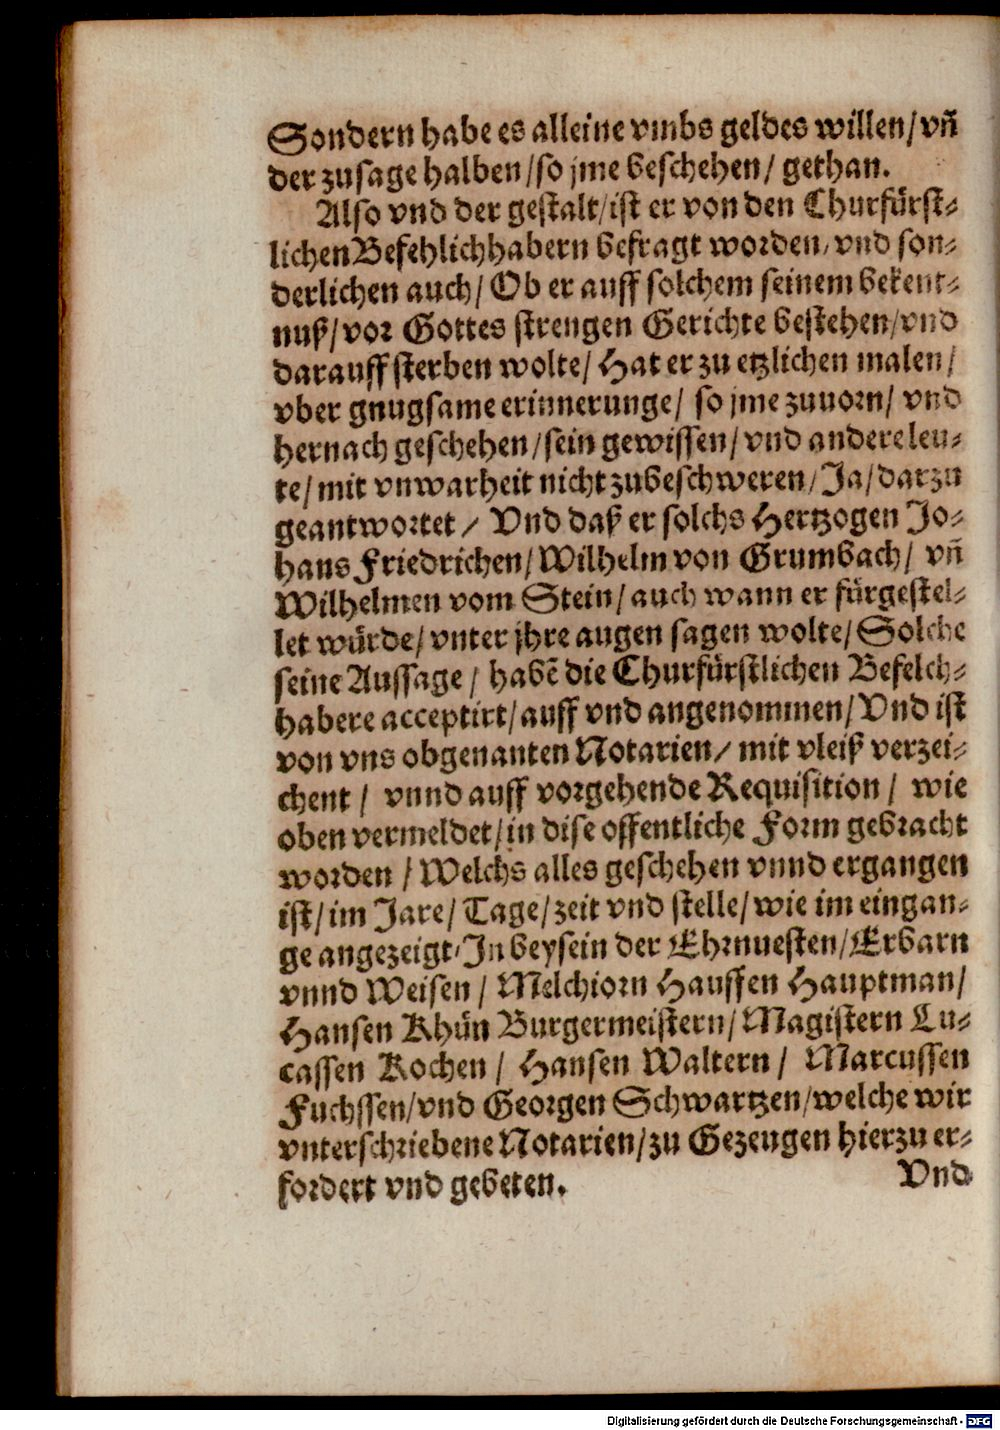 Sondern habe es alleine vmbs geldes willen/ vñ
der zusage halben/ so jme beschehen/ gethan.
Also vnd der gestalt/ ist er von den Churfürst⸗
lichen Befehlichhabern befragt worden/ vnd son⸗
derlichen auch/ Ob er auff solchem seinem bekent⸗
nuß/ vor Gottes strengen Gerichte bestehen/ vnd
darauff sterben wolte/ Hat er zu etzlichen malen/
vber gnugsame erinnerunge/ so jme zuuorn/ vnd
hernach geschehen/ sein gewissen/ vnd andere leu⸗
te/ mit vnwarheit nicht zubeschweren/ Ja/ darzu
geantwortet/ Vnd daß er solchs Hertzogen Jo⸗
hans Friedrichen/ Wilhelm von Grumbach/ vñ
Wilhelmen vom Stein/ auch wann er fürgestel⸗
let würde/ vnter jhre augen sagen wolte/ Solche
seine Aussage/ habẽ die Churfürstlichen Befelch⸗
habere acceptirt/ auff vnd angenommen/ Vnd ist
von vns obgenanten Notarien/ mit vleiß verzei⸗
chent/ vnnd auff vorgehende Requisition/ wie
oben vermeldet/ in dise offentliche Form gebracht
worden/ Welchs alles geschehen vnnd ergangen
ist/ im Jare/ Tage/ zeit vnd stelle/ wie im eingan⸗
ge angezeigt/ In beysein der Ehrnuesten/ Erbarn
vnnd Weisen/ Melchiorn Hauffen Hauptman/
Hansen Khün Burgermeistern/ Magistern Lu⸗
cassen Kochen/ Hansen Waltern/ Marcussen
Fuchssen/ vnd Georgen Schwartzen/ welche wir
vnterschriebene Notarien/ zu Gezeugen hierzu er⸗
fordert vnd gebeten.
Vnd
Digitalisierung gefördert durch die Deutsche Forschungsgemeinschaft - DFG